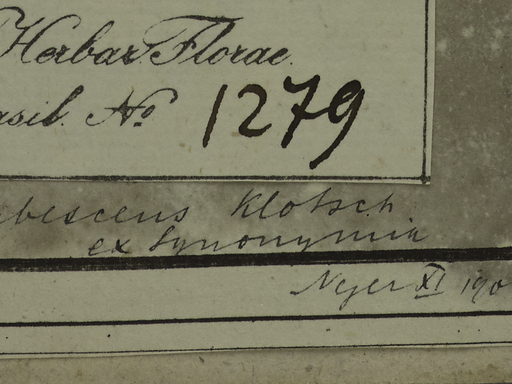 Herbar. Florae
asil. No. 1279
bescens Klotsch.
ex Synonymia
XI 190